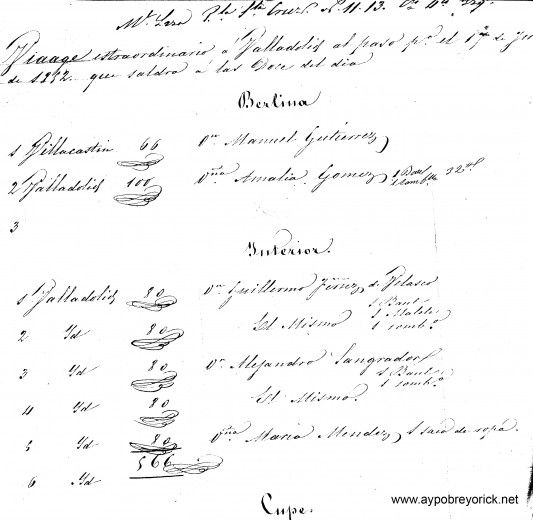 Viaage estraordinario á Valladolid al paso pª el 17 de
de 1842 que saldra á las Doce del dia
Berlina
1 Villacastin 66 Dn Manuel Gutierrez
2 Valladolid 100 Dña Amalia Gomez 1 Baul
3
Interior.
1 Valladolid 80 Dn Guillermo de Velasco
1 Baul
1 Maleta
2 Id 80 El Mismo 1 somb.ª
3 Id 80 Dn Alejandro Sangrador
1 Baul
1 somb.º
4 Id 80 El Mismo.
5 Id 80 Dña Maria Mendez 1 saco de ropa.
566
6 Id
Cupe.
www.aypobreyorick.net